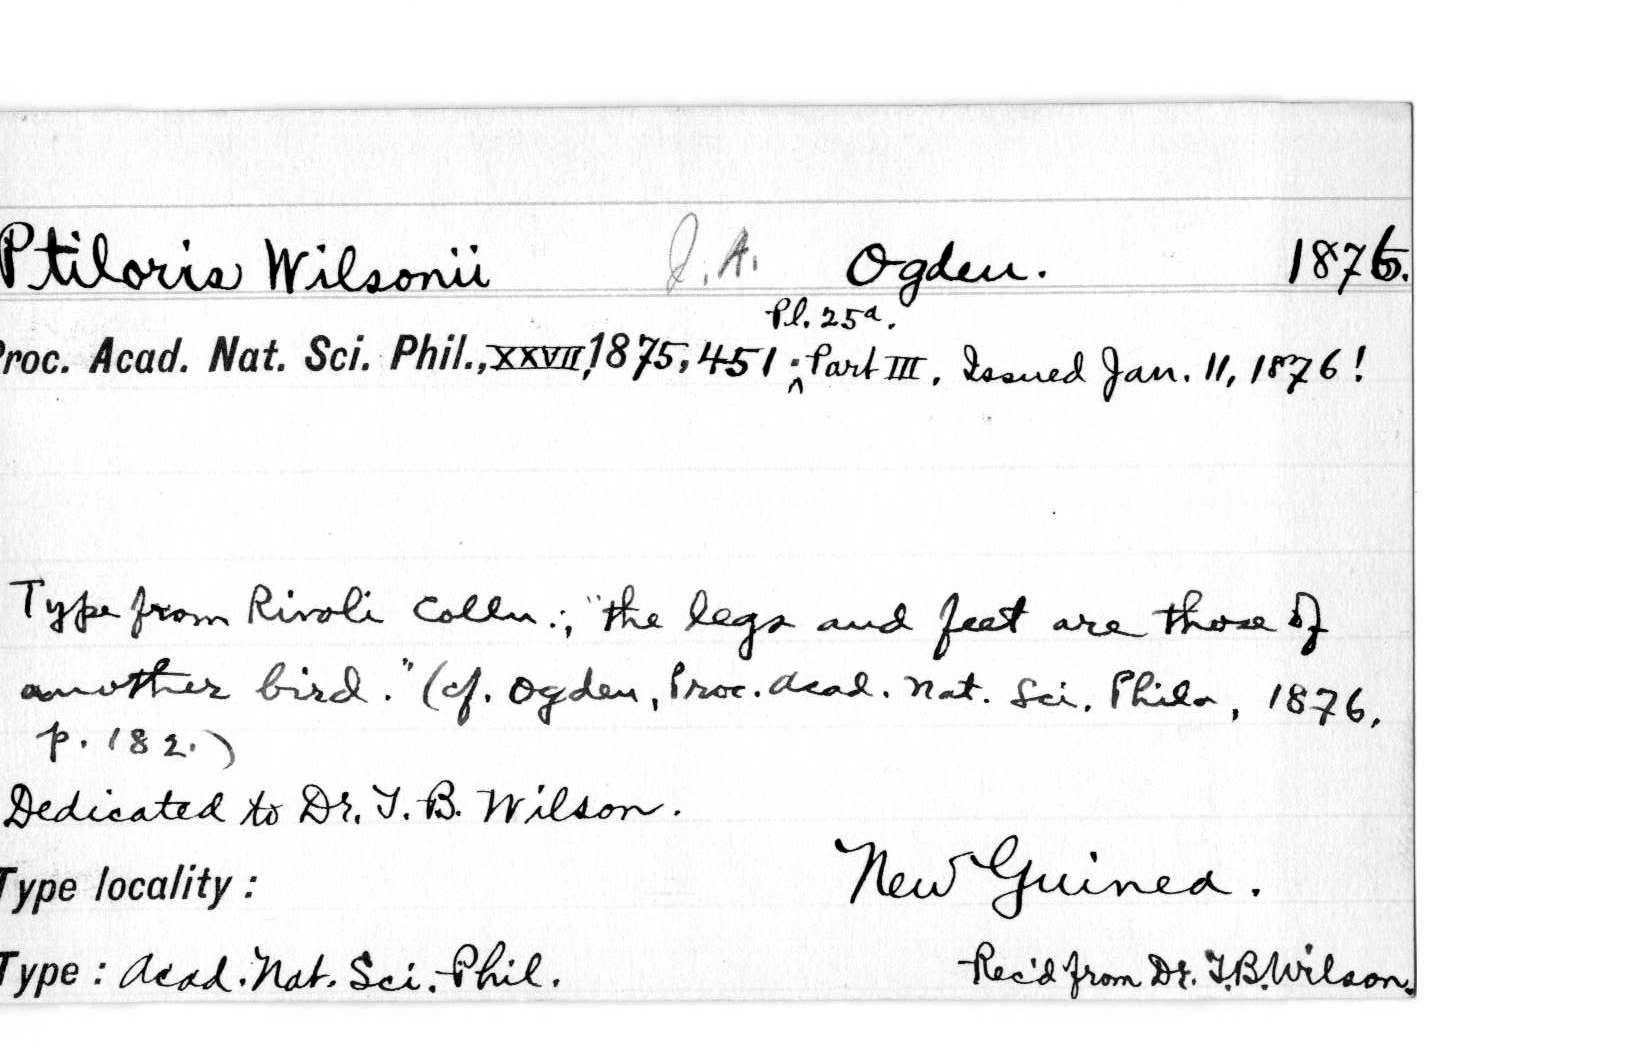 Ptiloris Wilsonii J. A. Ogden. 1876.
Pl. 25a.
Proc. Acad. Nat. Sci. Phil., XXVII, 1875, 451 ; ^ Part III, Issued Jan. 11, 1876!
Type from Rivoli Colln.; "the legs and feet are those of
another bird." (cf. Ogden, Proc. Acad. Nat. Sci. Phila, 1876,
p. 182.)
Dedicated to Dr. T. B. Wilson.
Type locality: New Guinea.
Type: Acad. Nat. Sci. Phil. Rec'd from Dr. T.B. Wilson.